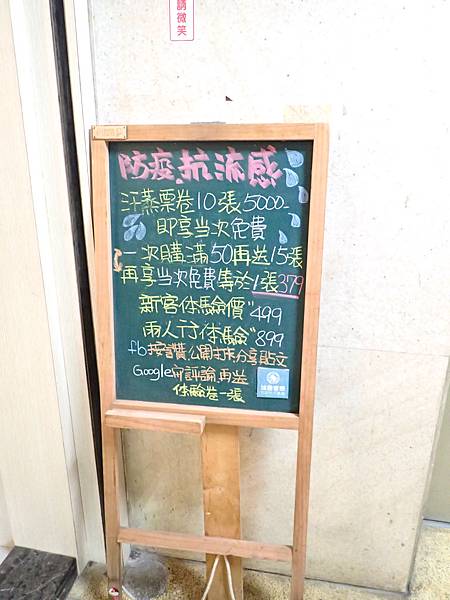 請微笑
防疫抗流感
汗蒸票卷10張5000-
即享当次免費
一次購滿50再送15張
再享当次免費等於1張379
新客体驗價"499
兩人行体驗"899
fb按讚公開打卡分享貼文
Google評論再送
体驗卷一張